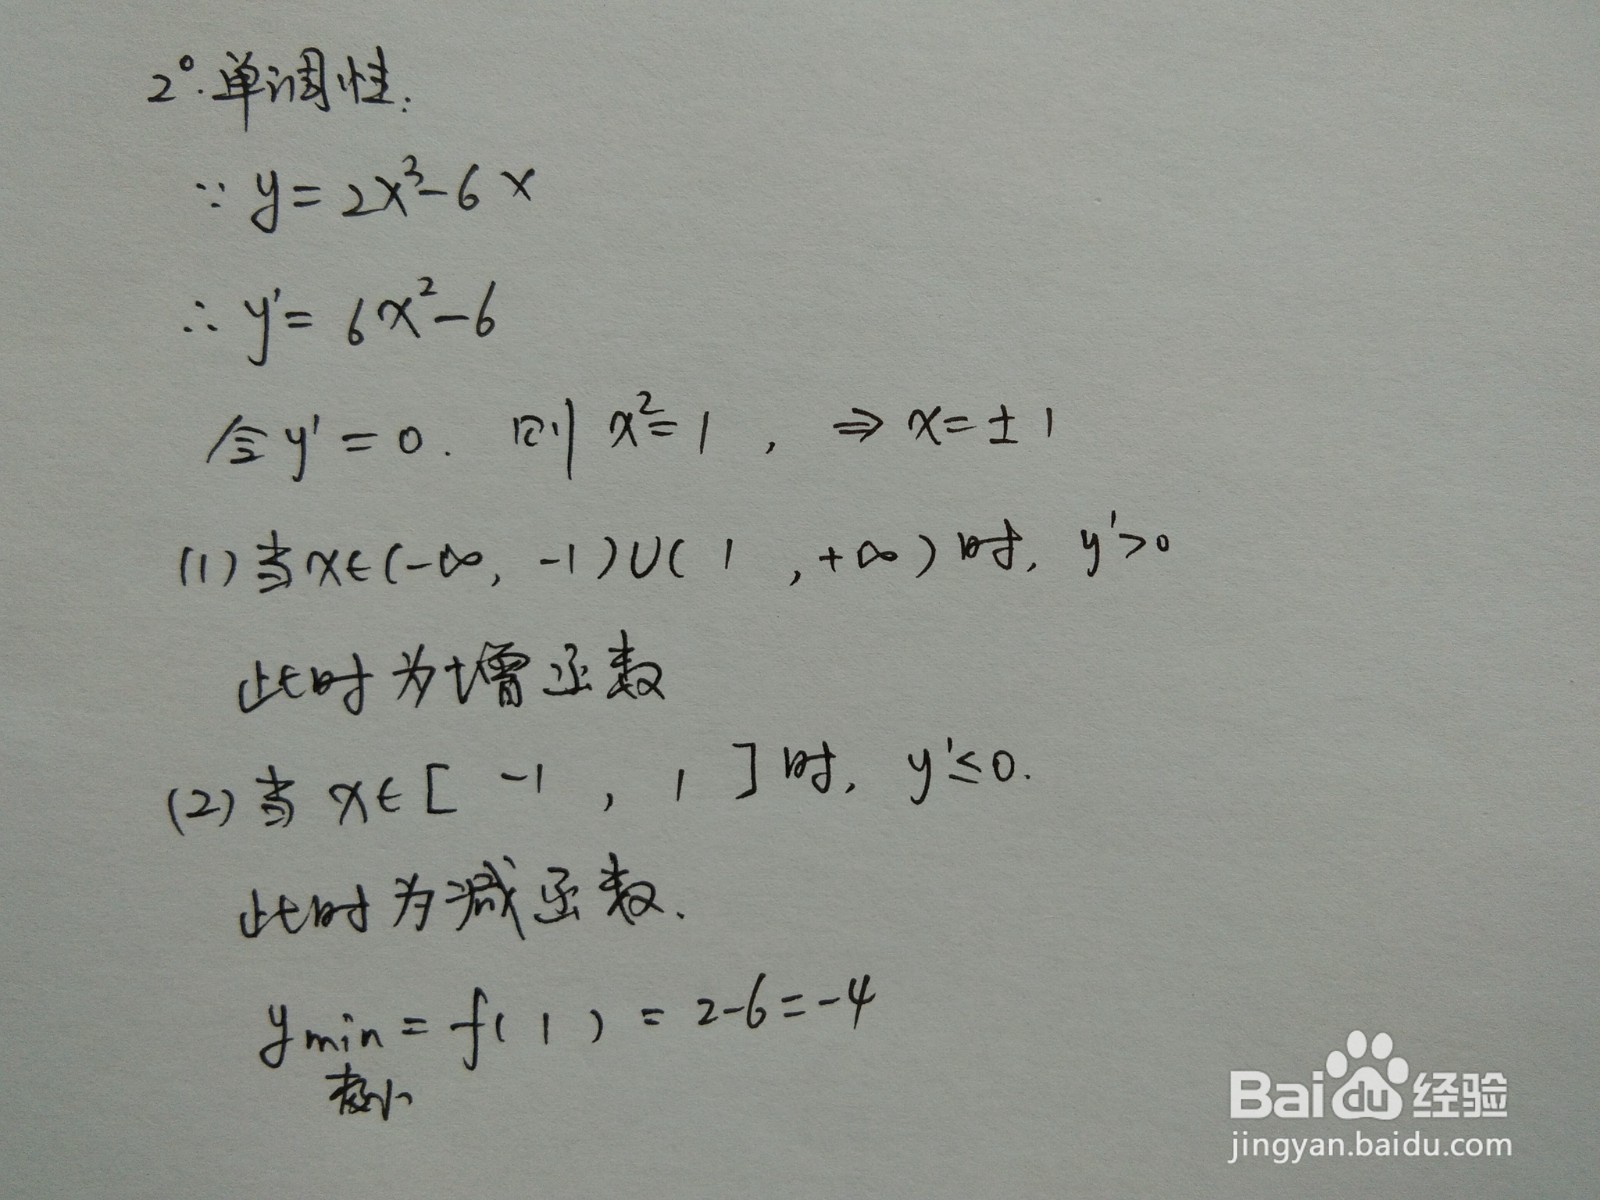 2°.单调性:
∵ y = 2x³-6x
∴ y' = 6x²-6
令y' = 0. 则 x²=1 , ⇒ x=±1
(1)当x∈(-∞, -1)∪( 1 ,+∞)时, y'>0
此时为增函数
(2)当 x∈[ -1 , 1 ]时, y'≤0.
此时为减函数.
ymin = f( 1 ) = 2-6=-4
极小
Baidu经验
jingyan.baidu.com